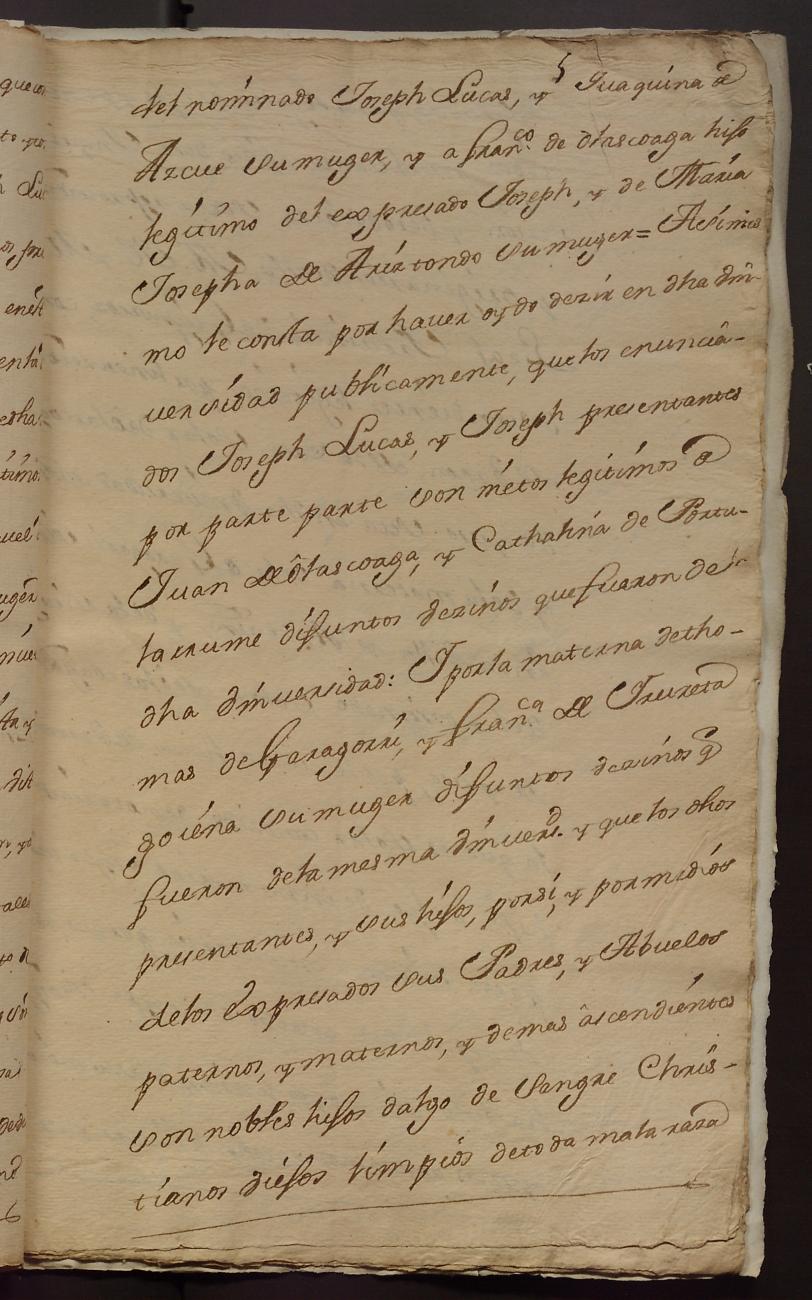 del nominado Joseph Lucas, y Juaquina de
Azcue su muger, y a Fran.co de Olascoaga hijo
legítimo del expresado Joseph, y de María
Josepha de Ariztondo su muger = Asimis
mo le consta por haver oydo dezir en dha Vni-
versidad publicamente, que los enuncia-
dos Joseph Lucas, y Joseph presentantes
por parte parte son nietos legítimos de
Juan de Olascoaga, y Cathalina de Portu-
larrume difuntos vezinos que fueron de
dha Vniversidad: Y por la materna de tho-
mas de Garagorri, y Fran.ca de Trureta
goiena su muger difuntos vezinos q
fueron de la mesma Vnivers.d y que los dhos
presentantes, y sus hijos, por sí, y por midios
de los Expresados sus Padres, y Abuelos
paternos, y maternos, y demas ascendientes
son nobles hijos dalgo de sangre Chris-
tianos viejos limpios de toda mala raza